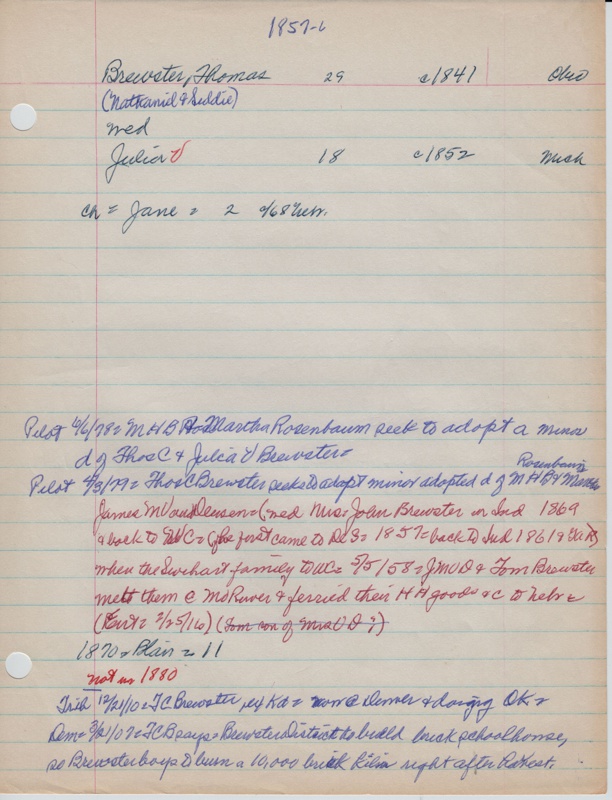 1857-L
Brewster, Thomas 29 c1841 Ohio
(Nathaniel & Siddie)
wed
Julia V 18 c1852 Mich
ch = Jane = 2 c/68 Nebr.
Pilot 4/6/78 = M H B Martha Rosenbaum seek to adopt a minor
d of Thos C & Julia V Brewster =
Rosenbaum
Pilot = Thos C Brewster seeks to adopt minor adopted d of M H B & Martha
James M Van Deusen = (wed Mrs. John Brewster in Ind 1869
& back to WC = (he first came to 1857 = back to Ind
when the Swihart family to WC = 5/5/58 = J M V D & Tom Brewster
met them @ Mo River & ferried their H H goods &c to Nebr =
2/25/16) (Tom son of Mrs V D ?)
1870 = Blair = 11
not in 1880
Trib 12/21/10 = T C Brewster, = now @ Denver & doing OK =
Dem = 3/21/07 = T C B says = Brewster District to build brick schoolhouse,
so Brewster boys to burn a 10,000 brick kiln right after